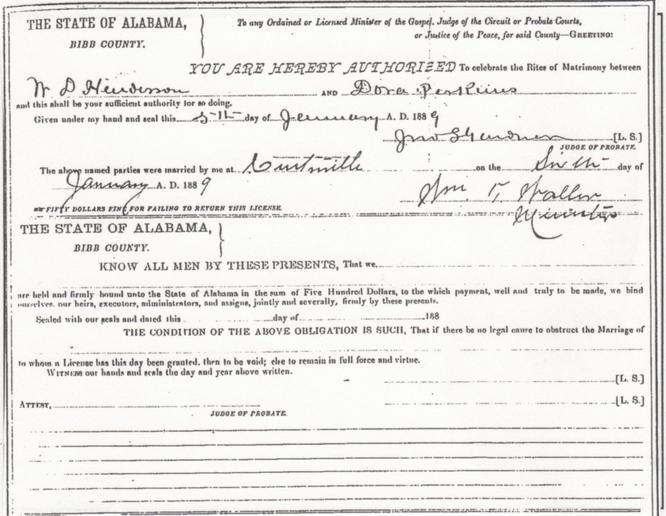 THE STATE OF ALABAMA,
BIBB COUNTY.
To any Ordained or Licensed Minister of the Gospel, Judge of the Circuit or Probate Courts,
or Justice of the Peace, for said County—GREETING:
YOU ARE HEREBY AUTHORIZED To celebrate the Rites of Matrimony between
W D Henderson AND Dora Perkins
and this shall be your sufficient authority for so doing.
Given under my hand and seal this 5th day of January A. D. 1889
[L. S.]
JUDGE OF PROBATE.
The above named parties were married by me at on the Sixth day of
January A. D. 1889
Wm. T. Waller
FIFTY DOLLARS FINE FOR FAILING TO RETURN THIS LICENSE.
Minister
THE STATE OF ALABAMA,
BIBB COUNTY.
KNOW ALL MEN BY THESE PRESENTS, That we
are held and firmly bound unto the State of Alabama in the sum of Five Hundred Dollars, to the which payment, well and truly to be made, we bind
ourselves, our heirs, executors, administrators, and assigns, jointly and severally, firmly by these presents.
Sealed with our seals and dated this day of 188
THE CONDITION OF THE ABOVE OBLIGATION IS SUCH, That if there be no legal cause to obstruct the Marriage of
to whom a License has this day been granted, then to be void; else to remain in full force and virtue.
WITNESS our hands and seals the day and year above written.
[L. S.]
ATTEST, [L. S.]
JUDGE OF PROBATE.